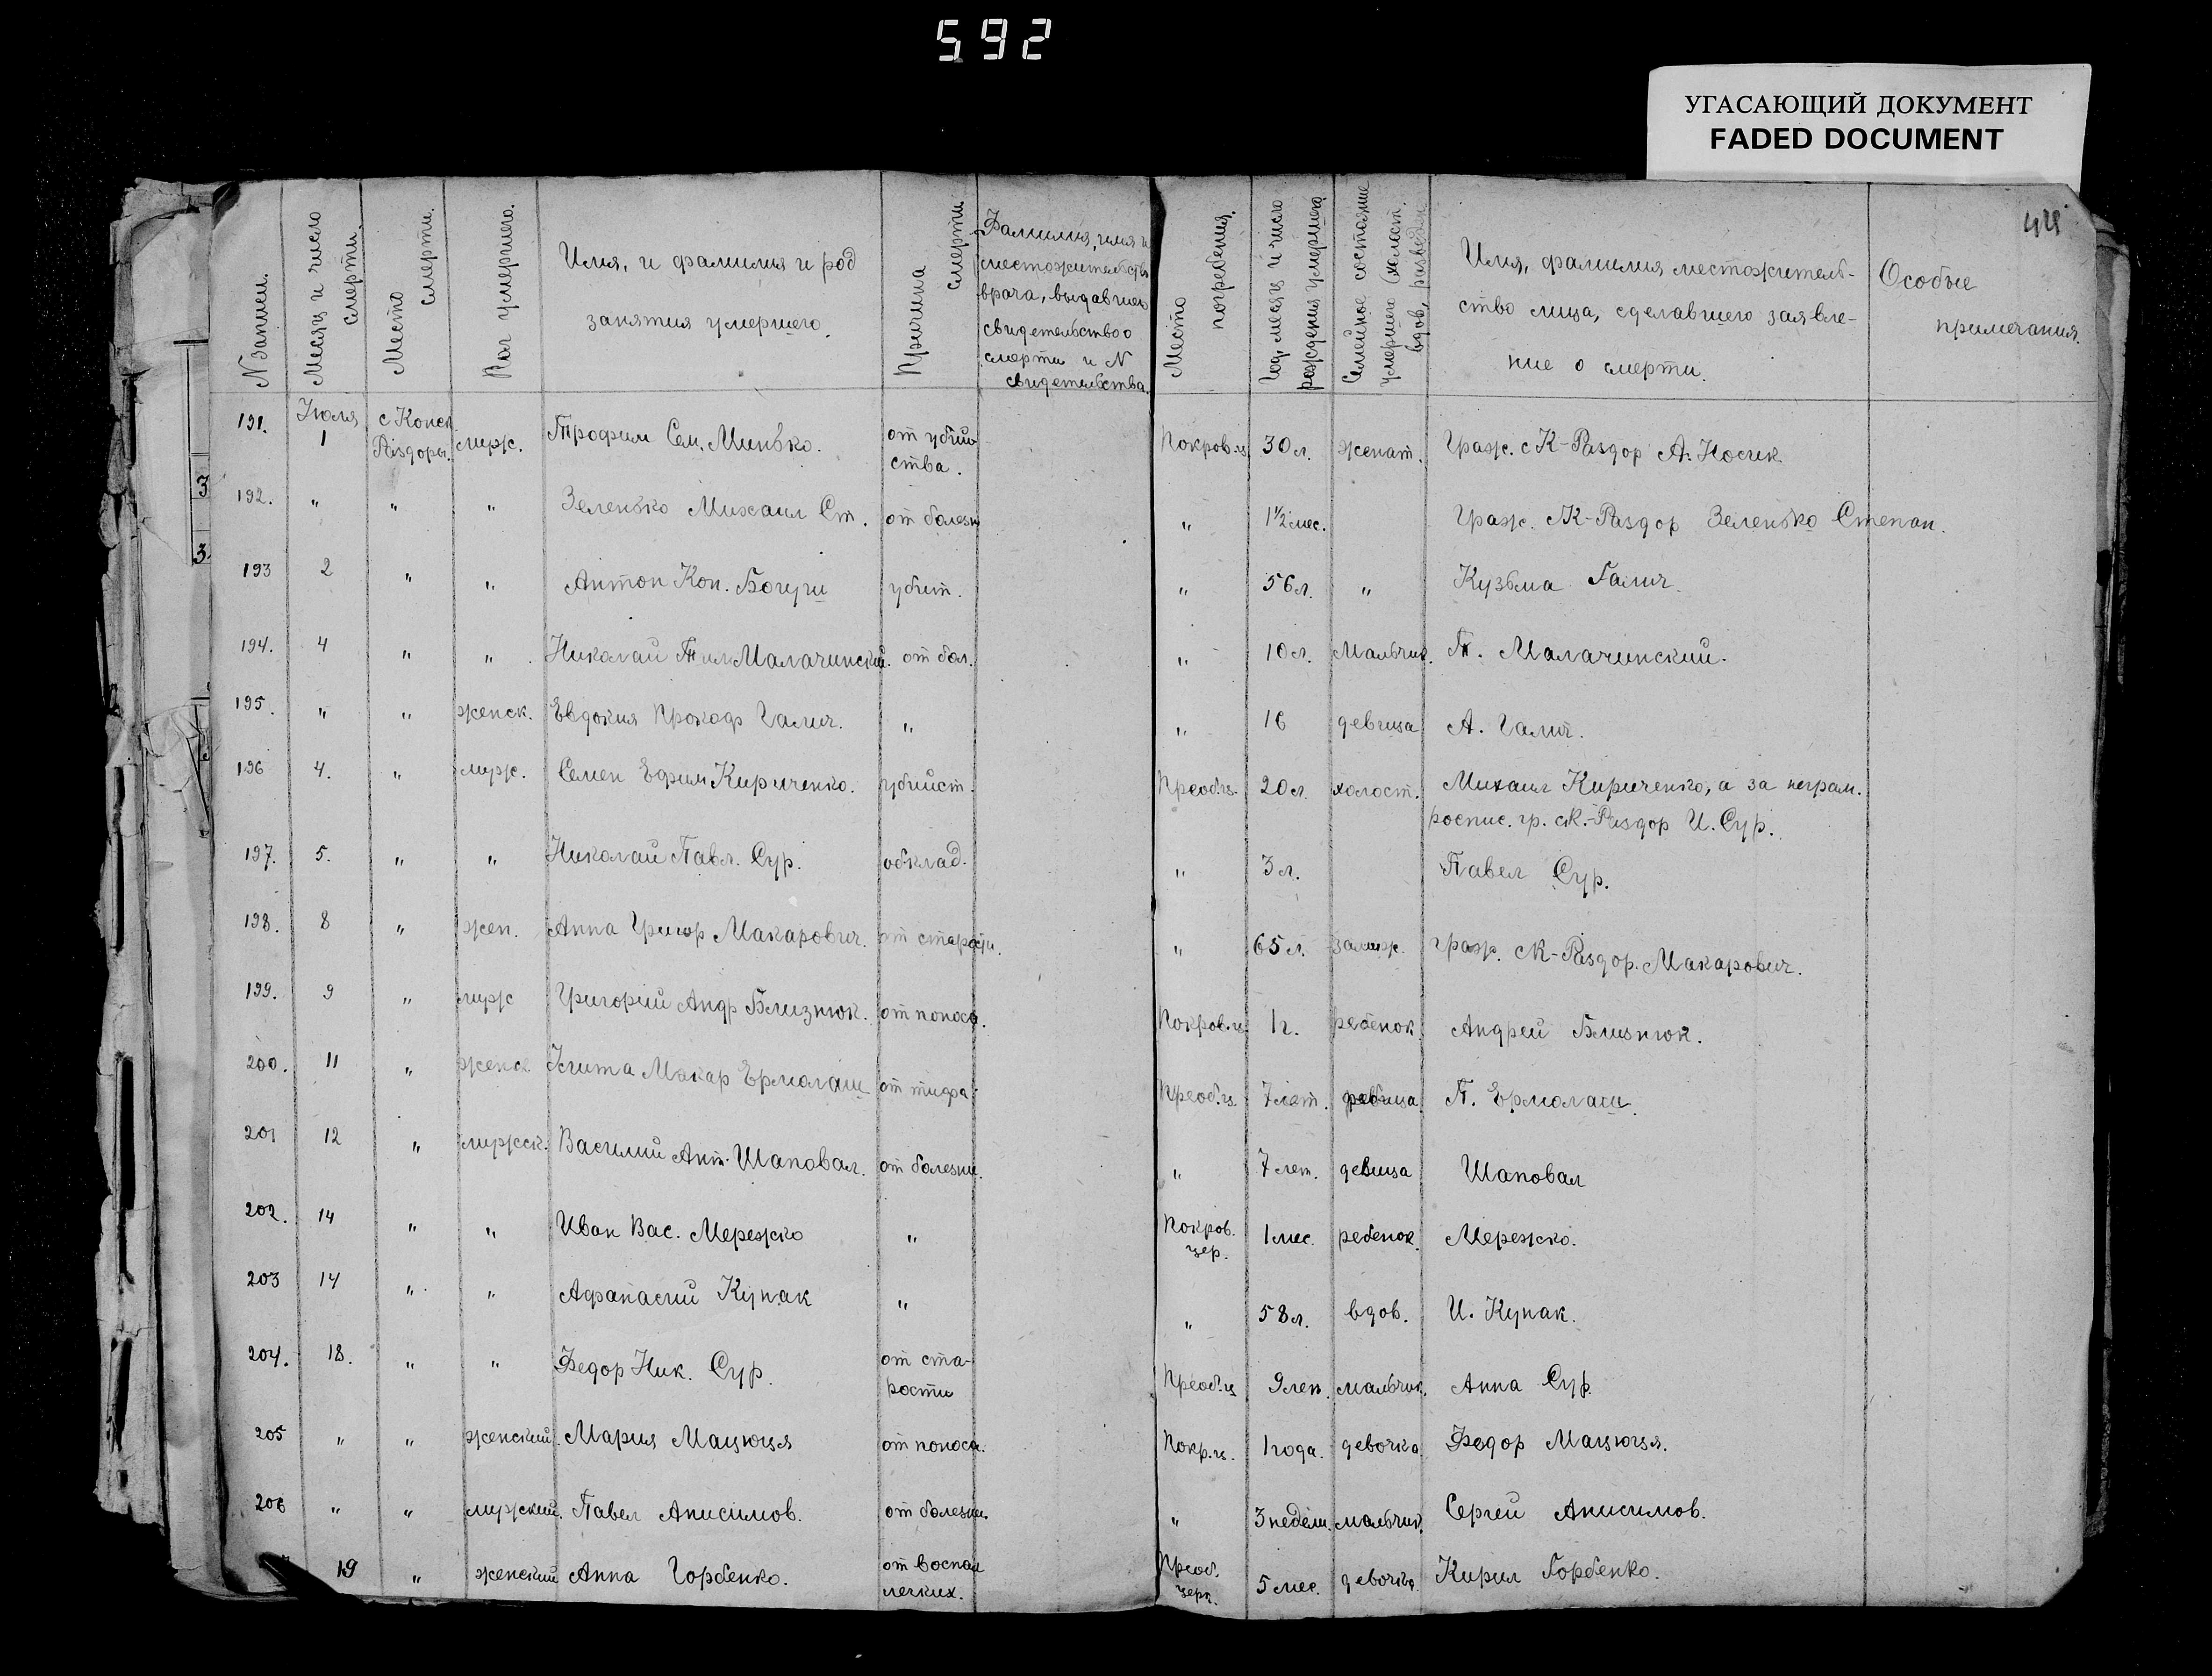 592
УГАСАЮЩИЙ ДОКУМЕНТ
FADED DOCUMENT
N Записи.
Месяц и число смерти.
Место смерти.
Пол умершего.
Имя, и фамилия и род
занятия умершего.
Причина смерти.
Фамилия, имя и
местожительств
врача, выдавшего
свидетельство о
смерти и N
свидетельства.
Место погребения.
Год, месяц и число рождения умершего.
Семейное состояние умершего (холост. вдов, разведен
Имя, фамилия местожитель-
ство лица, сделавшего заявле-
ние о смерти.
Особые
примечания.
191. Июля 1 с Конск. Раздоры. муж. Трофим Сем. Минько. от убий ства. Покров.ц. 30 л. женат. Граж. с К-Раздор А. Носик
192. " " " Зенько Михаил Ст. от болезн " 1½ мес. Граж. с К-Раздор Зеленько Степан.
193 2 " " Антон Кон. Богуш убит. " 56 л. " Кузьма Галич.
194. 4 " " Николай Малачинский. от бол. " 10 л. Мальчик. Т. Малачинский.
195. " " женск. Евдокия Прокоф Галич. " " 16 девица А. Галич.
196 4. " муж. Семен Ефим Кириченко. убийст. Преоб.ц. 20 л. холост. Михаил Кириченко, а за неграм.
роспис. гр. с К.-Раздор И. Сур.
197. 5. " " Николай Павл. Сур. обклад. " 3 л. Павел Сур.
198. 8 " жен. Анна Григор Макарович. от старости. " 65 л. замуж. граж. с К-Раздор. Макарович.
199. 9 " муж Григорий Андр Близнюк. от поноса. Покров.ц. 1 г. ребенок. Андрей Близнюк.
200. 11 " женск Макар Ермолаш от тифа. Преоб.ц. 7 лет. П. Ермолаш.
201 12 " мужск. Василий Ант. Шаповал. от болезни. " 7 лет. девица Шаповал
202. 14 " " Иван Вас. Мережко " Покров. цер. 1 мес. ребенок. Мережко.
203 14 " " Афанасий Купак " " 58 л. вдов. И. Купак.
204. 18. " " Федор Ник. Сур. от ста- рости Преоб.ц 9 лет. мальчик. Анна Сур.
205 " " женский. Мария Мацюця от поноса. Покр.ц. 1 года. девочка. Федор Мацюця.
206 " " мужский. Павел Анисимов. от болезни. " 3 недели. мальчик. Сергей Анисимов.
19 " женский Анна Горбенко. от воспал легких. Преоб. церк. 5 мес. девочка. Кирил Горбенко.